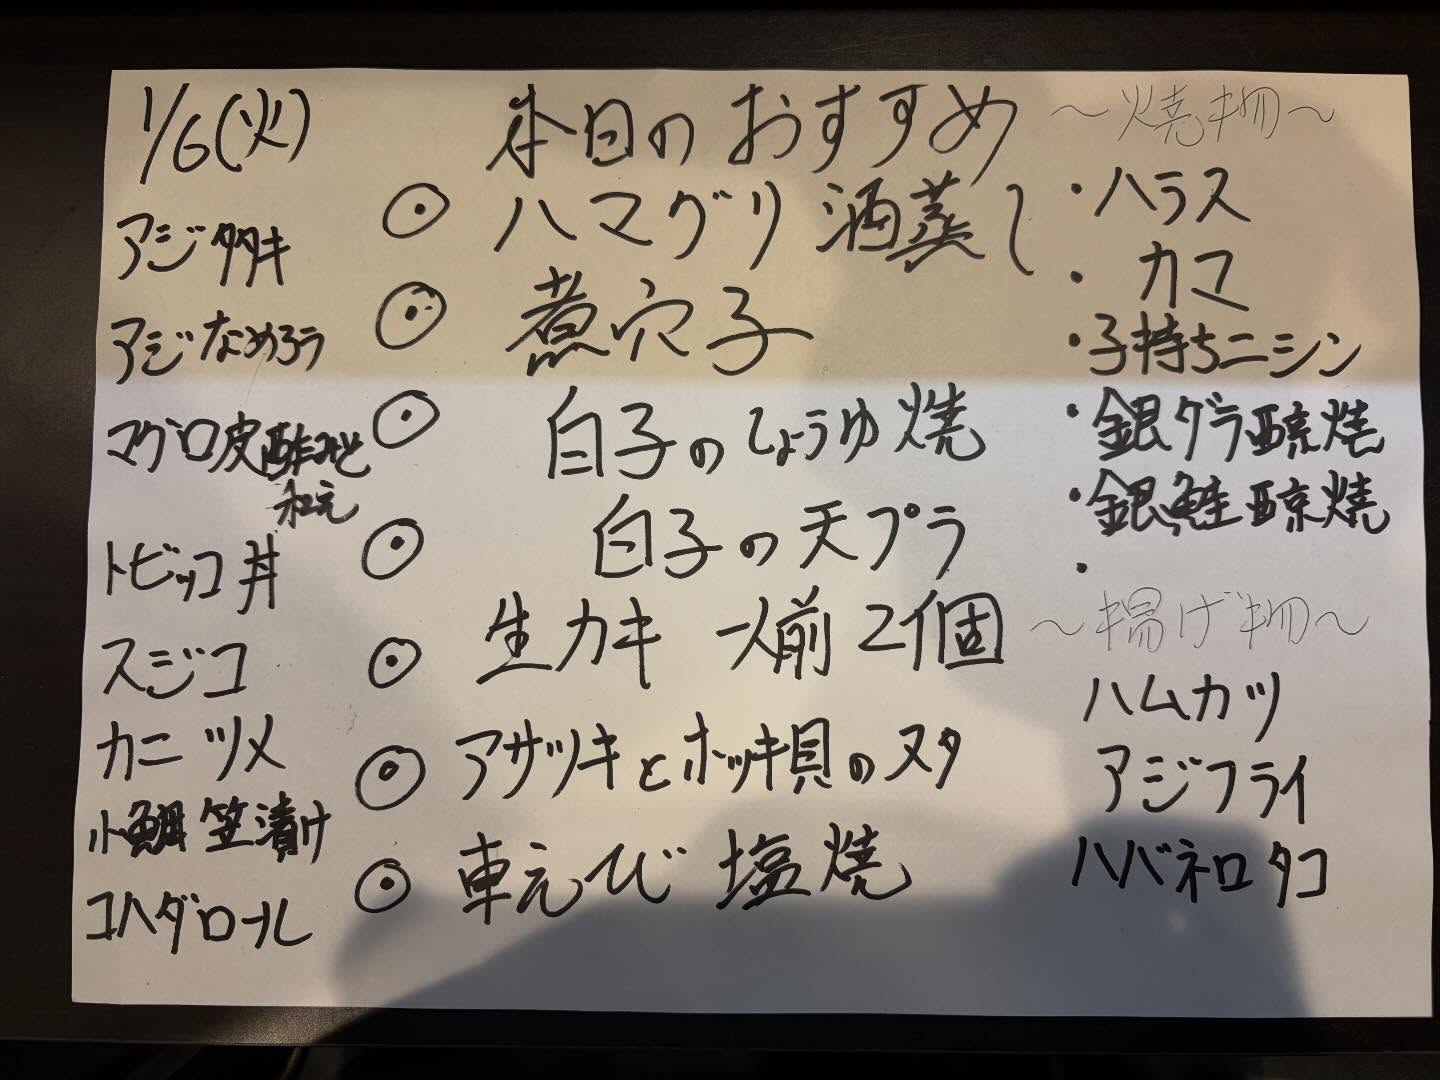 1/6(火)
アジ タタキ
アジ なめろう
マグロ皮酢みそ
和え
トビッコ 丼
スジコ
カニ ツメ
小鯛 笠漬け
コハダロール
本日の おすすめ
◎ ハマグリ 酒蒸し
◎ 煮穴子
◎ 白子の しょうゆ 焼
◎ 白子の 天プラ
◎ 生カキ 一人前 2個
◎ アサツキとホッキ貝のヌタ
◎ 車えび 塩焼
〜焼き物〜
・ハラス
・カマ
・子持ちニシン
・銀ダラ 醂焼
・銀鮭 醂焼
・
〜揚げ物〜
ハムカツ
アジフライ
ハバネロ タコ